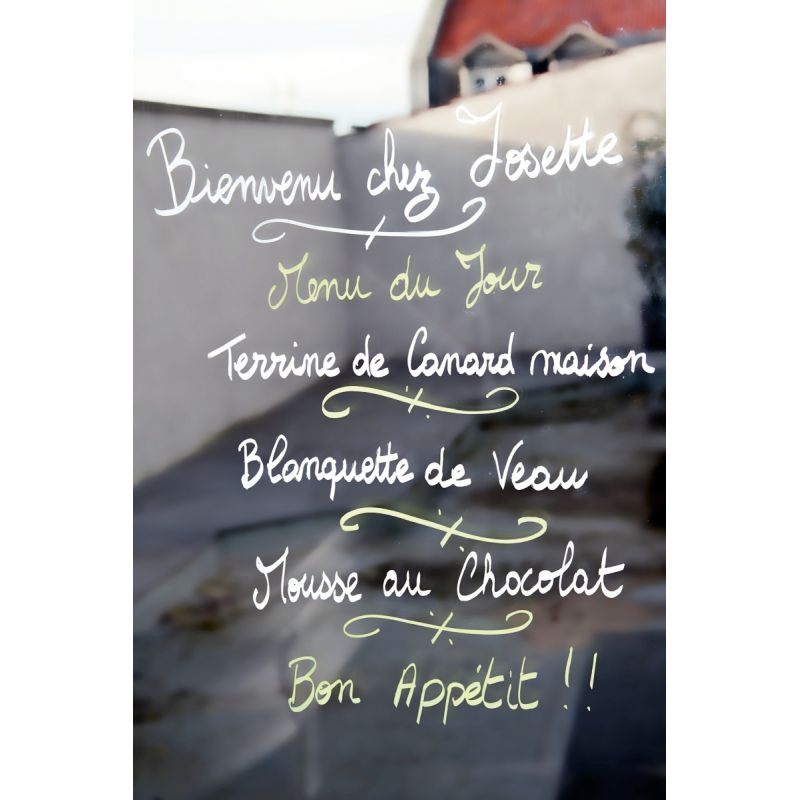 Bienvenu chez Josette
Menu du Jour
Terrine de Canard maison
Blanquette de Veau
Mousse au Chocolat
Bon Appétit !!